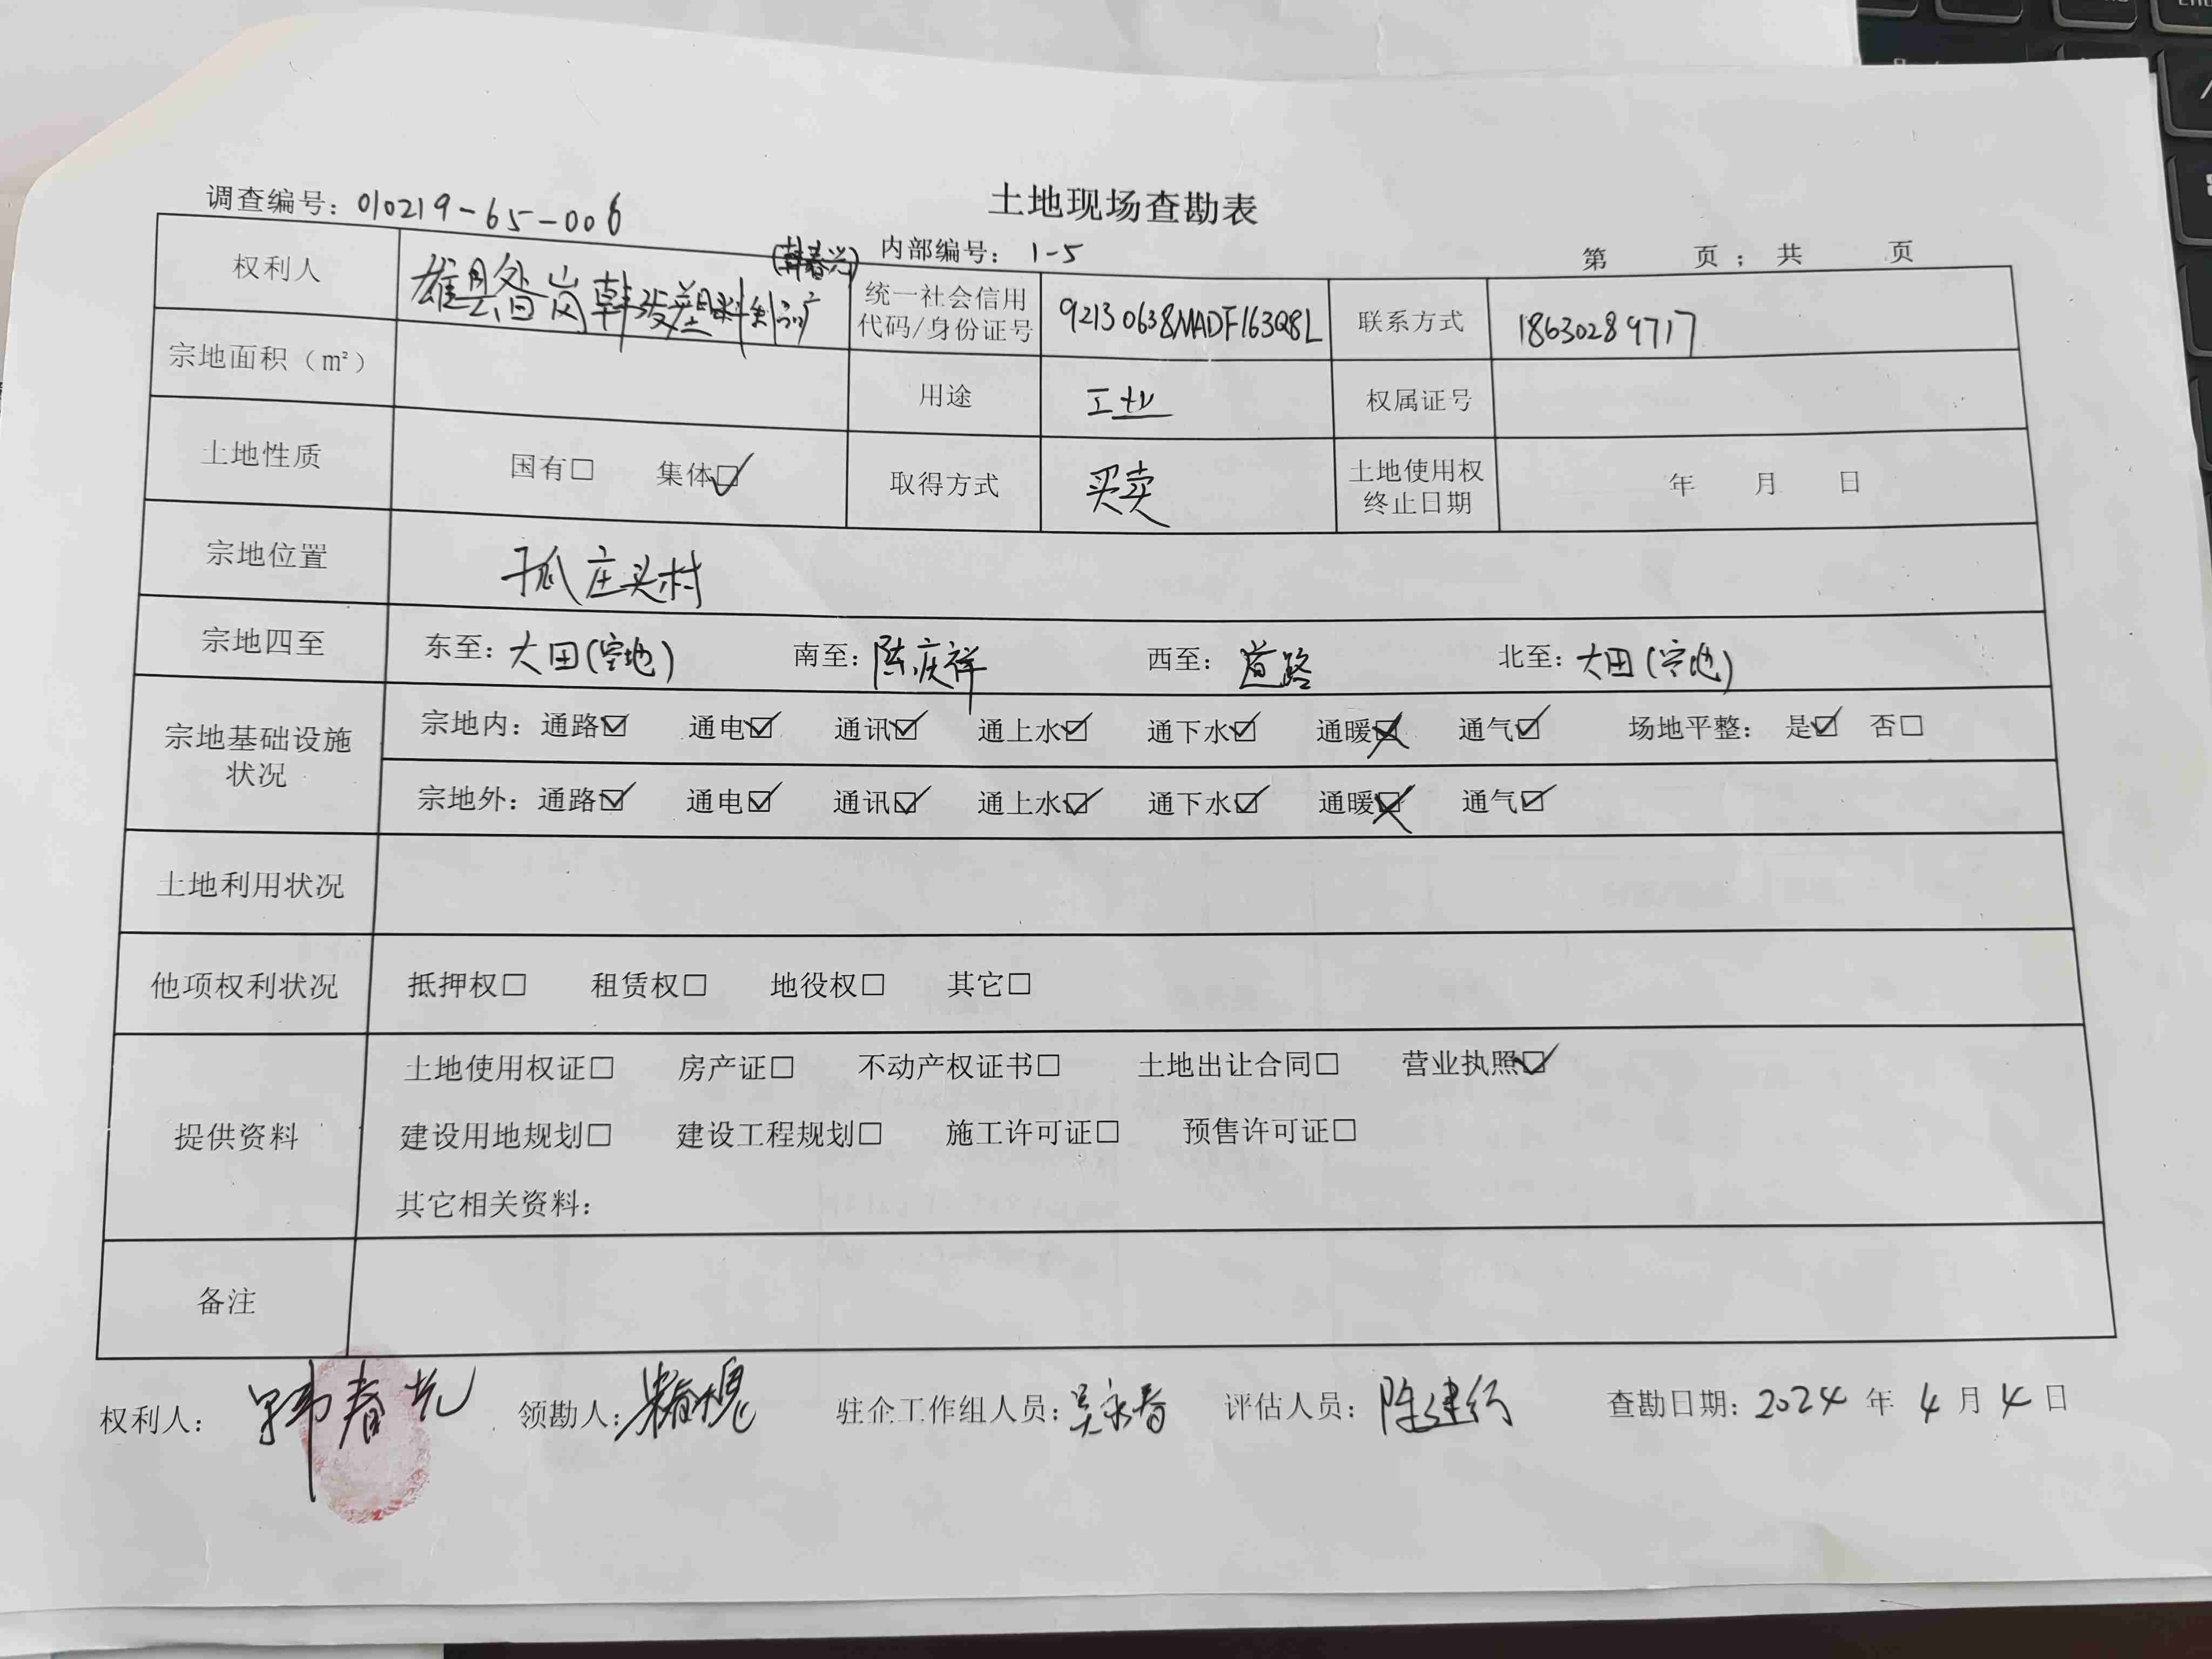 土地现场查勘表
调查编号：010219-65-006
内部编号：1-5
第 页；共 页
权利人 雄县昝岗韩张塑料制品厂 (韩春兴) 统一社会信用代码/身份证号 92130638MADF163Q8L 联系方式 18630289717
宗地面积（㎡） 用途 工业 权属证号
土地性质 国有□ 集体☑ 取得方式 买卖 土地使用权终止日期 年 月 日
宗地位置 孤庄头村
宗地四至 东至：大田(空地) 南至：陈庆祥 西至：道路 北至：大田(空地)
宗地基础设施状况 宗地内：通路☑ 通电☑ 通讯☑ 通上水☑ 通下水☑ 通暖☒ 通气☑ 场地平整：是☑ 否□
宗地外：通路☑ 通电☑ 通讯☑ 通上水☑ 通下水☑ 通暖☒ 通气☑
土地利用状况
他项权利状况 抵押权□ 租赁权□ 地役权□ 其它□
提供资料 土地使用权证□ 房产证□ 不动产权证书□ 土地出让合同□ 营业执照☑
建设用地规划□ 建设工程规划□ 施工许可证□ 预售许可证□
其它相关资料：
备注
权利人：韩春兴 领勘人： 驻企工作组人员：吴永春 评估人员：陈建行 查勘日期：2024年4月4日